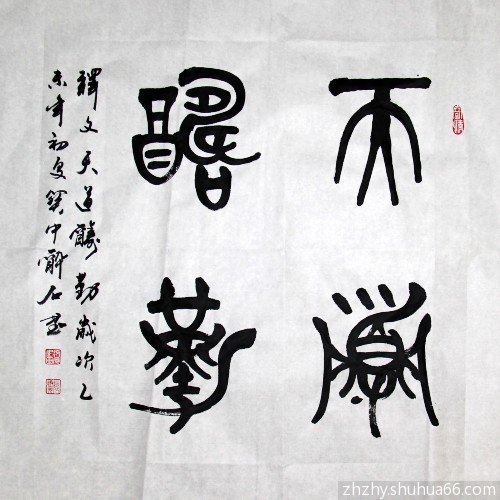 天道
酬勤
釋文天道酬勤歲次乙
未年初夏關中石書
zhzhy.shuhua66.com